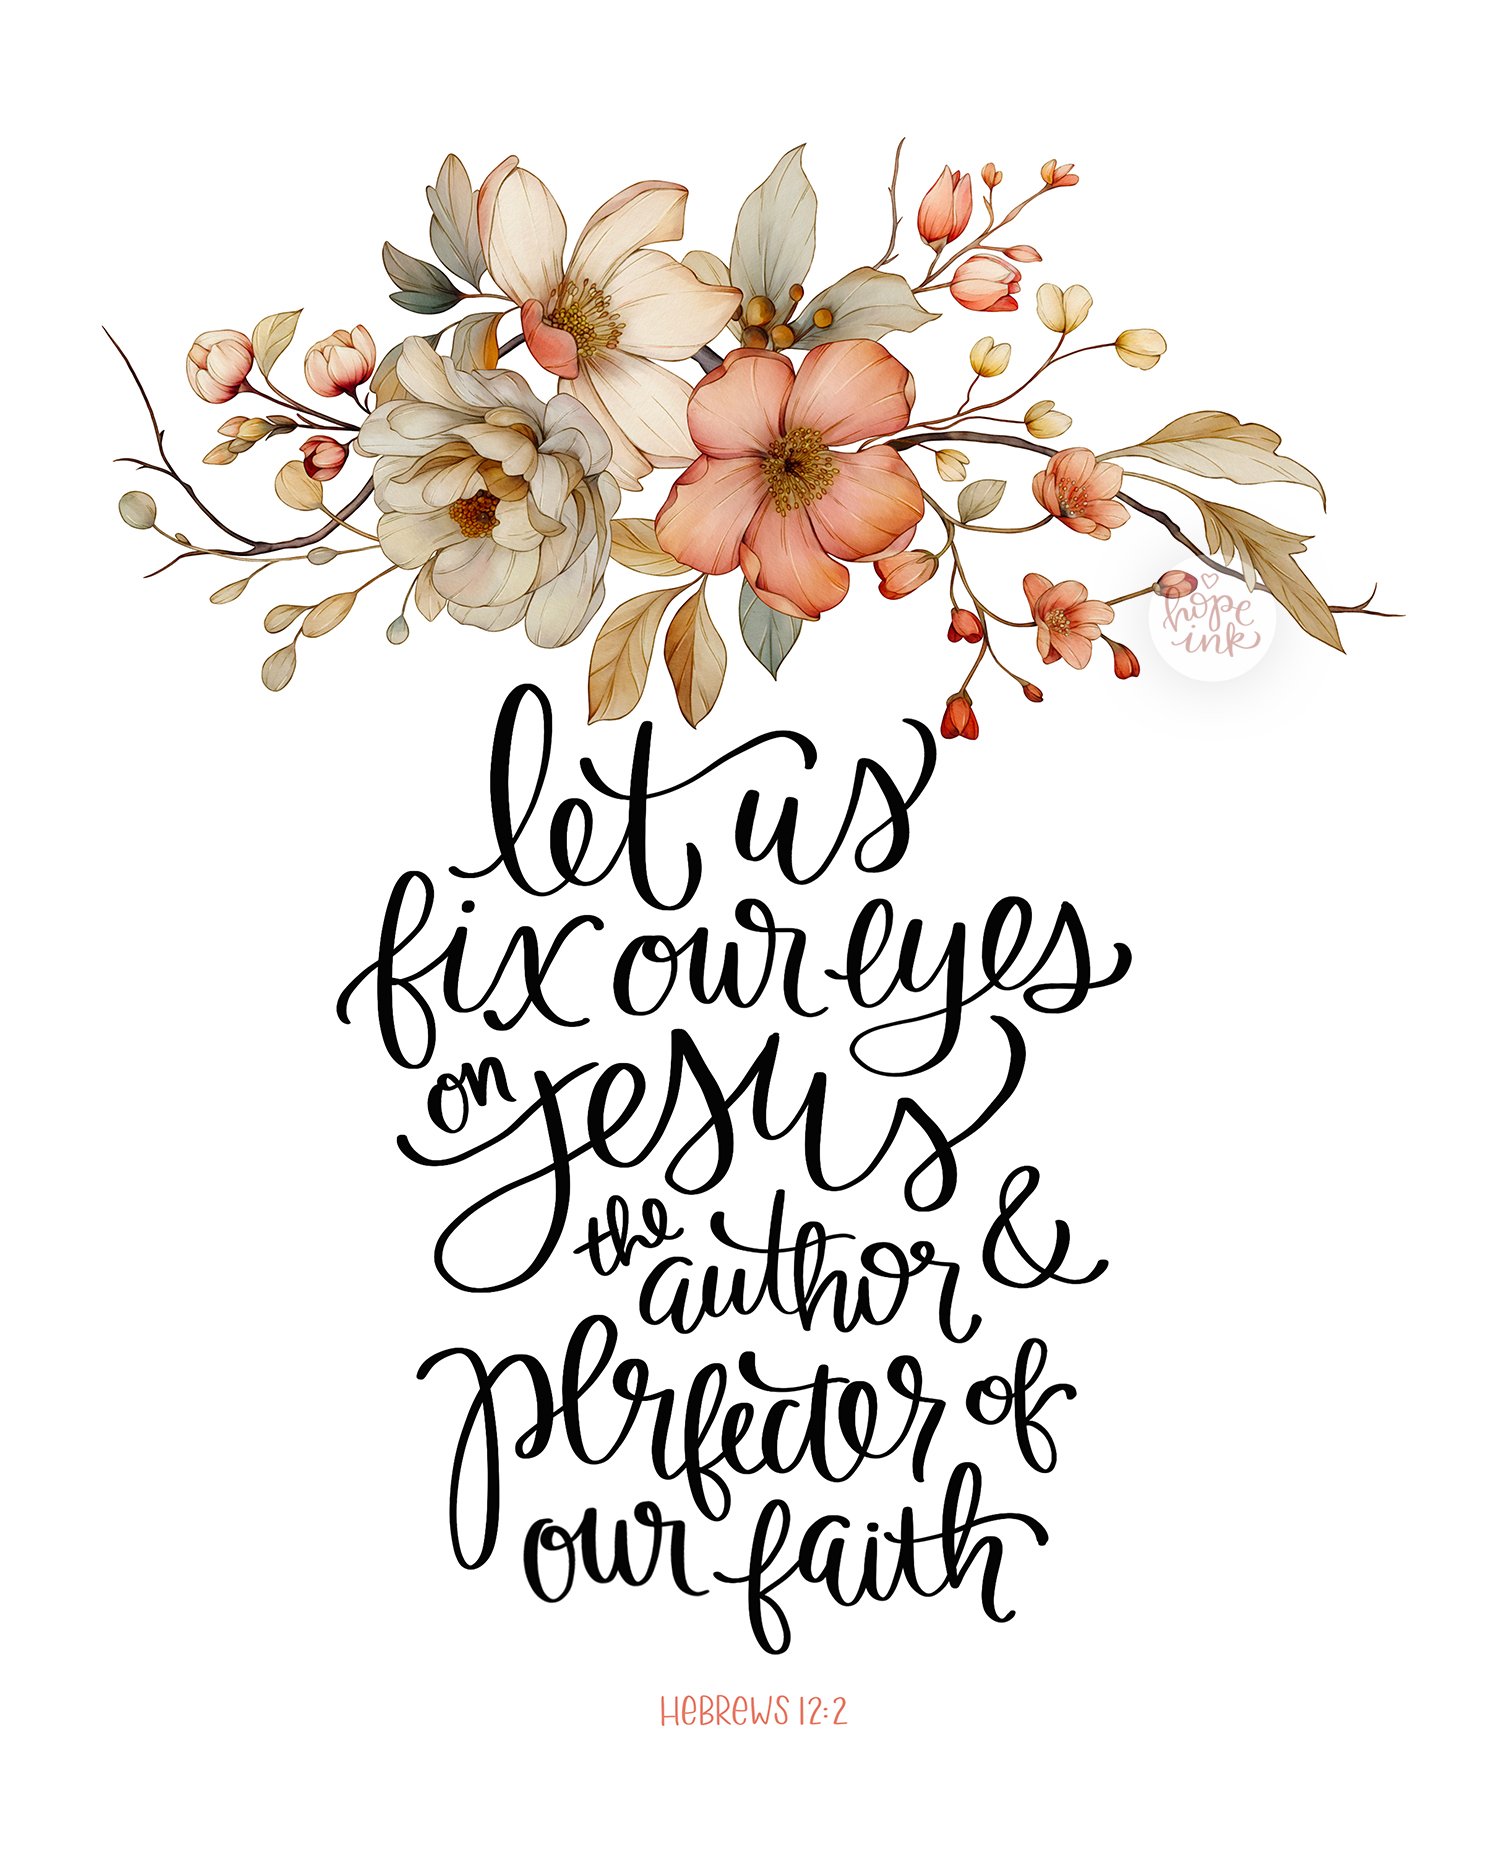 hope
ink
let us
fix our eyes
on Jesus
the author &
perfecter of
our faith
HEBREWS 12:2